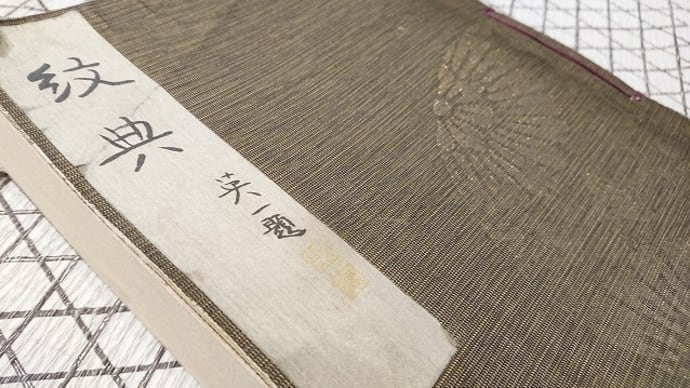 紋典
英一題